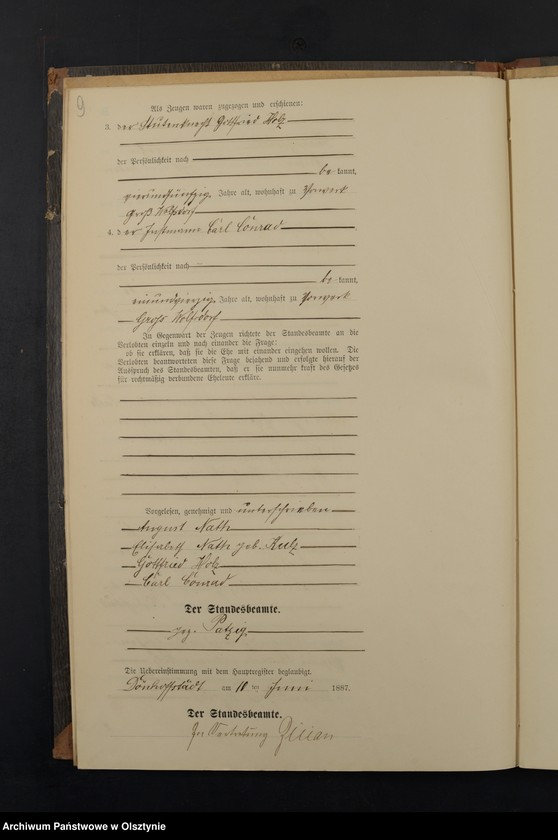 9
Als Zeugen waren zugezogen und erschienen:
3. der Gottfried Holz
der Persönlichkeit nach
be kannt,
vierundfünfzig Jahre alt, wohnhaft zu Vorwerk
Groß Wolfsdorf
4. der Instmann Carl Conrad
der Persönlichkeit nach
be kannt,
einundvierzig Jahre alt, wohnhaft zu Vorwerk
Groß Wolfsdorf
In Gegenwart der Zeugen richtete der Standesbeamte an die
Verlobten einzeln und nach einander die Frage:
ob sie erklären, daß sie die Ehe mit einander eingehen wollen. Die
Verlobten beantworteten diese Frage bejahend und erfolgte hierauf der
Ausspruch des Standesbeamten, daß er sie nunmehr kraft des Gesetzes
für rechtmäßig verbundene Eheleute erkläre.
Vorgelesen, genehmigt und unterschrieben
August Nath
Elisabeth Nath geb.
Gottfried Holz
Carl Conrad
Der Standesbeamte.
gez. Patzig.
Die Uebereinstimmung mit dem Hauptregister beglaubigt.
Dönhoffstädt am 10 ten Juni 1887.
Der Standesbeamte.
In Vertretung Zilian
Archiwum Państwowe w Olsztynie